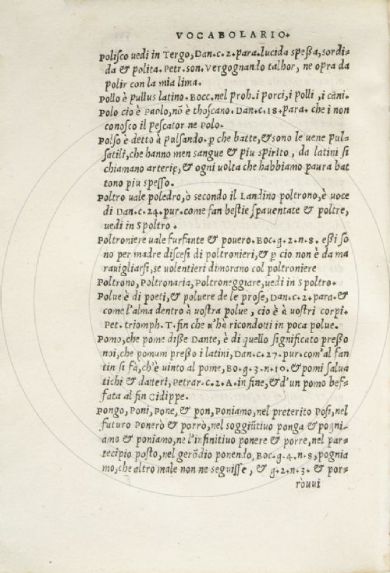 VOCABOLARIO.
Polisco uedi in Tergo, Dan.c.2.para.lucida speßa, sordi-
da & polita. Petr.son.Vergognando talhor, ne opra da
polir con la mia lima.
Pollo è pullus latino. Bocc.nel proh.i porci, i polli, i cāni.
Polo cio è Paolo, nō è thoscano. Dan.c.18.Para.che i non
conosco il pescator ne Polo.
Polso è detto à pulsando. p che batte, & sono le uene pulsa
satili, che hanno men sangue & piu spirito, da latini si
chiamano arterię, & ogni volta che habbiamo paura bat
tono piu spesso.
Poltro uale poledro, ò secondo il Landino poltrono, è uoce
di Dan.c.24.pur.come fan bestie spauentate & poltre,
uedi in Spoltro.
Poltroniere uale furfante & pouero. Boc.g.2.n.8. eßi so
no per madre discesi di poltronieri, & p cio non è da ma
rauigliarsi, se volentieri dimorano col poltroniere
Poltrono, Poltronaria, Poltroneggiare, uedi in Spoltro.
Polue è di poeti, & poluere de le prose, Dan.c.2.para.&
come l'alma dentro à uostra polue, cio è à uostri corpi.
Pet.triomph.T.fin che u'hà ricondotti in poca polue.
Pomo, che pome diße Dante, è di quello significato preßo
noi, che pomum preßo i latini, Dan.c.27.pur.com'al fan
tin si fà, ch'è uinto al pome, Bo.g.3.n.10.& pomi salua
tichi & datteri, Petrar.c.2.A.in fine, & d'un pomo bef-
fata al fin Cidippe.
Pongo, Poni, Pone, & pon, Poniamo, nel preterito Posi, nel
futuro Ponerò & porrò, nel soggiūtiuo ponga & pogni-
amo & poniamo, ne l'infinitiuo ponere & porre, nel par-
tecipio posto, nel gerōdio ponendo, Boc.g.4.n.8, pognia
mo, che altro male non ne seguisse, & g.2.n.3. & por-
rouui